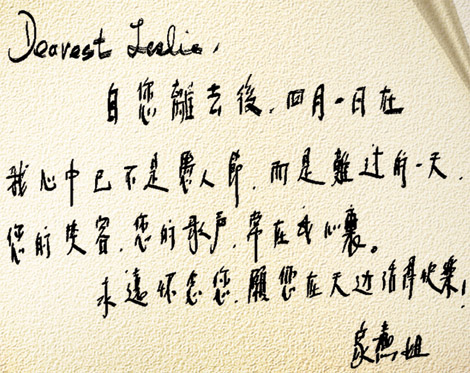 Dearest Leslie,
自您離去後，四月一日在
我心中已不是愚人節，而是難过的一天，
您的笑容，您的歌声，常在我心裏。
永遠怀念您，願您在天边活得快樂！
家燕姐